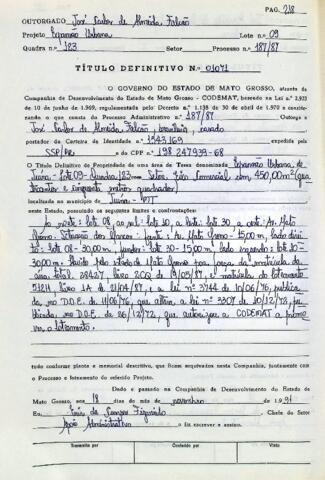 PAG. 218
OUTORGADO José Carlos de Almeida Falcão
Projeto Expansão Urbana Lote n.o 09
Quadra n.o 123 Setor Processo n.o 187/87
TÍTULO DEFINITIVO N.o 01071
O GOVERNO DO ESTADO DE MATO GROSSO, através da
Companhia de Desenvolvimento do Estado de Mato Grosso - CODEMAT, baseado na Lei n.o
de 10 de junho de 1969, regulamentada pelo Decreto n.o 1.138 de 30 de abril de 1970 e considerando
o que consta do Processo Administrativo n.o 187/87 Outorga a
José Carlos de Almeida Falcão, brasileiro, casado
portador da Carteira de Identidade n.o expedida pela
SSP/ e do CPF 198.247939-68
O Título Definitivo de Propriedade de uma área de Terra denominada Expansão Urbana de
Juína - Lote 09 - Quadra 123 Setor Comercial com 450,00m² (qua
trocentos e cinquenta metros quadrados)
localizada no município de Juína - MT
neste Estado, possuindo os seguintes limites e confrontações:
norte: lote 08, ao sul: lote 10, a leste: lote 30 a oeste: Av. Mato
Grosso. frente: Av. Mato Grosso - 15,00 m, lado direi
to: lote 08 - 30,00 m, fundos: lote 30 - 15,00 m lado esquerdo: lote 10 -
30,00 m. pelo Estado de Mato Grosso matrícula da
área total 28427, livro 2CQ de 19/03/87, e matrícula do loteamento
51211 livro 1A de 21/04/87, e a lei nº 3744 de 10/06/76, publica
da, no D.O.E. de 11/06/76, que altera a lei nº 3307 de 10/12/72, pu
blicada, no D.O.E. de 26/12/72, que autoriza a CODEMAT a promo
ver o loteamento.
tudo conforme planta e memorial descritivo, que ficam arquivados nesta Companhia, juntamente com
o Processo e loteamento do referido Projeto.
Dado e passado na Companhia de Desenvolvimento do Estado de
Mato Grosso, aos 18 dias do mês de novembro de 1991
Eu, de Campos Figueiredo Chefe do Setor
Apoio Administrativo o fiz escrever e assino.
Transcrito por Conferido por Visto